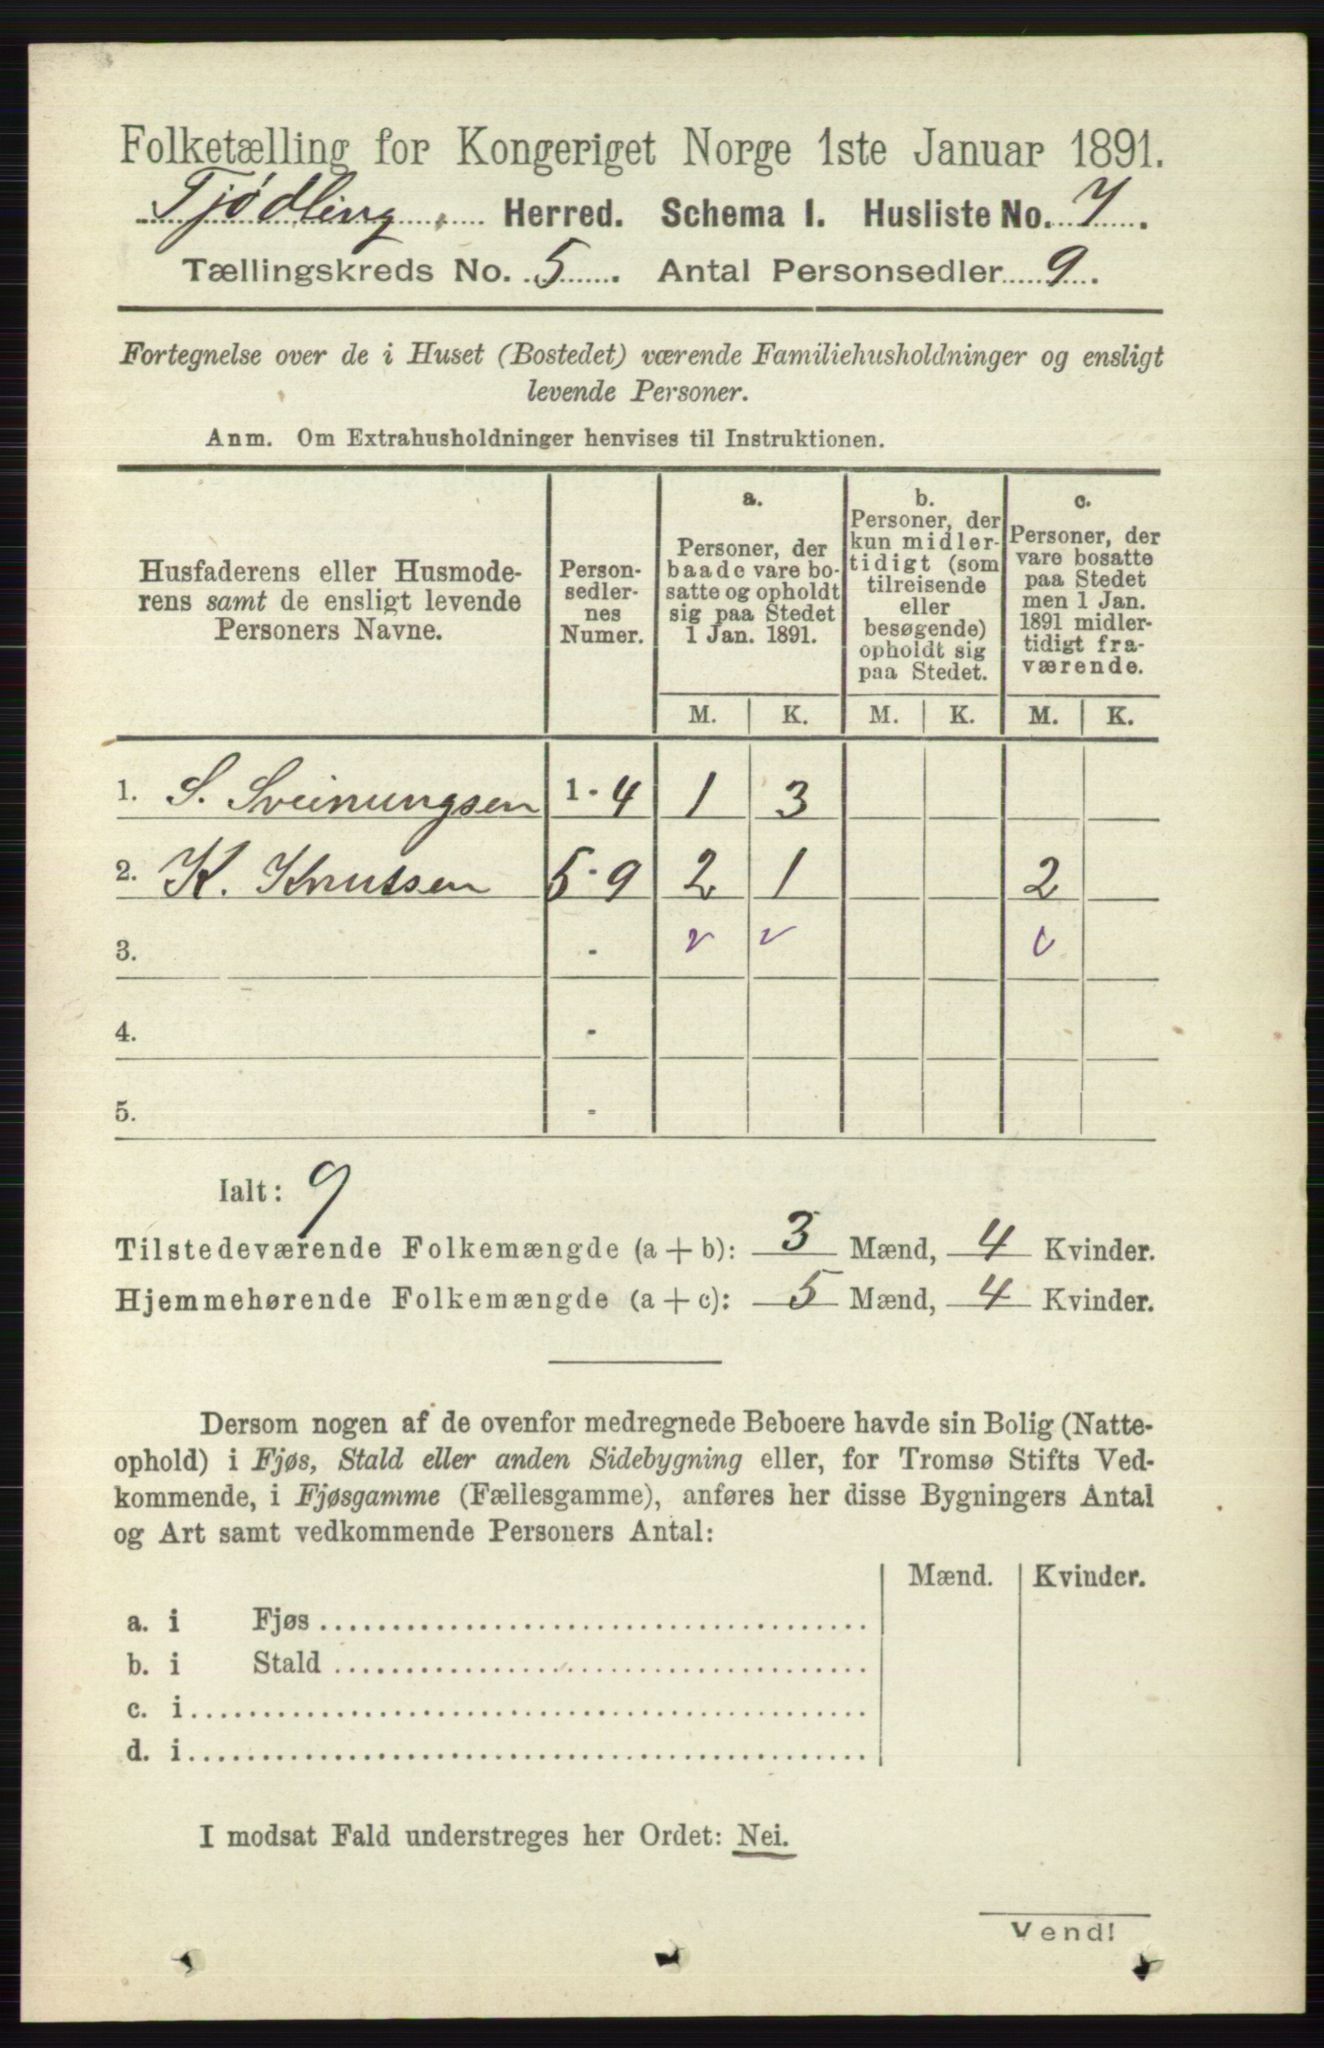 Folketælling for Kongeriget Norge 1ste Januar 1891.
Tjødling Herred. Schema 1. Husliste No. 7.
Tællingskreds No. 5. Antal Personsedler 9.
Fortegnelse over de i Huset (Bostedet) værende Familiehusholdninger og ensligt
levende Personer.
Anm. Om Extrahusholdninger henvises til Instruktionen.
Husfaderens eller Husmode-
rens samt de ensligt levende
Personers Navne.
Person-
sedler-
nes
Numer.
a.
Personer, der
baade vare bo-
satte og opholdt
sig paa Stedet
1 Jan. 1891.
b.
Personer, der
kun midler-
tidigt (som
tilreisende
eller
besøgende)
opholdt sig
paa Stedet.
c.
Personer, der
vare bosatte
paa Stedet
men 1 Jan.
1891 midler-
tidigt fra-
værende.
M. K. M. K. M. K.
1. S. Sveinungsen 1 - 4 1 3
2. K. Knutsen 5 - 9 2 1 2
3. -
4. -
5. -
Ialt: 9
Tilstedeværende Folkemængde (a + b): 3 Mænd, 4 Kvinder.
Hjemmehørende Folkemængde (a + c): 5 Mænd, 4 Kvinder.
Dersom nogen af de ovenfor medregnede Beboere havde sin Bolig (Natte-
ophold) i Fjøs, Stald eller anden Sidebygning eller, for Tromsø Stifts Ved-
kommende, i Fjøsgamme (Fællesgamme), anføres her disse Bygningers Antal
og Art samt vedkommende Personers Antal:
Mænd. Kvinder.
a. i Fjøs
b. i Stald
c. i
d. i
I modsat Fald understreges her Ordet: Nei.
Vend!